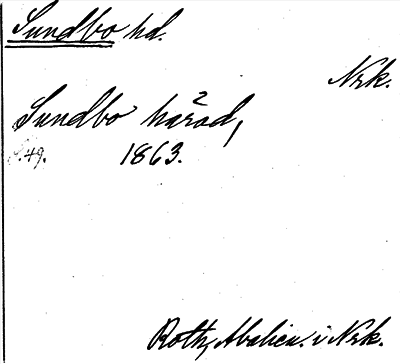 Sundbo hd.
Nrk.
Sundbo härad,
s. 49. 1863.
Roth, i Nrk.